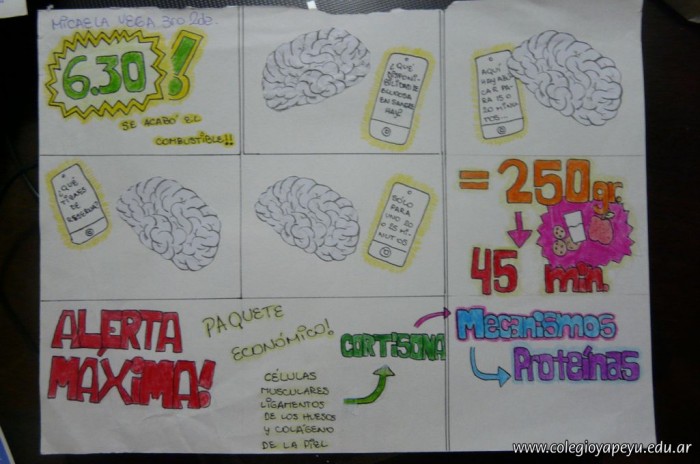 MICAELA VEGA 3ro
6.30!
SE ACABÓ EL
COMBUSTIBLE!!
¿QUÉ
DISPONI-
BILIDAD DE
GLUCOSA
EN SANGRE
HAY?
AQUÍ
HAY AZÚ-
CAR PA-
RA 15 O
20 MINU-
TOS...
¿QUÉ
TIENES
DE
RESERVA?
SÓLO
PARA
UNO 20
O 25 MI-
NUTOS
= 250gr.
45 min.
ALERTA
MÁXIMA!
PAQUETE
ECONÓMICO!
CÉLULAS
MUSCULARES
LIGAMENTOS
DE LOS HUESOS
Y COLÁGENO
DE LA PIEL
CORTISONA
Mecanismos
Proteínas
www.colegioyapeyu.edu.ar